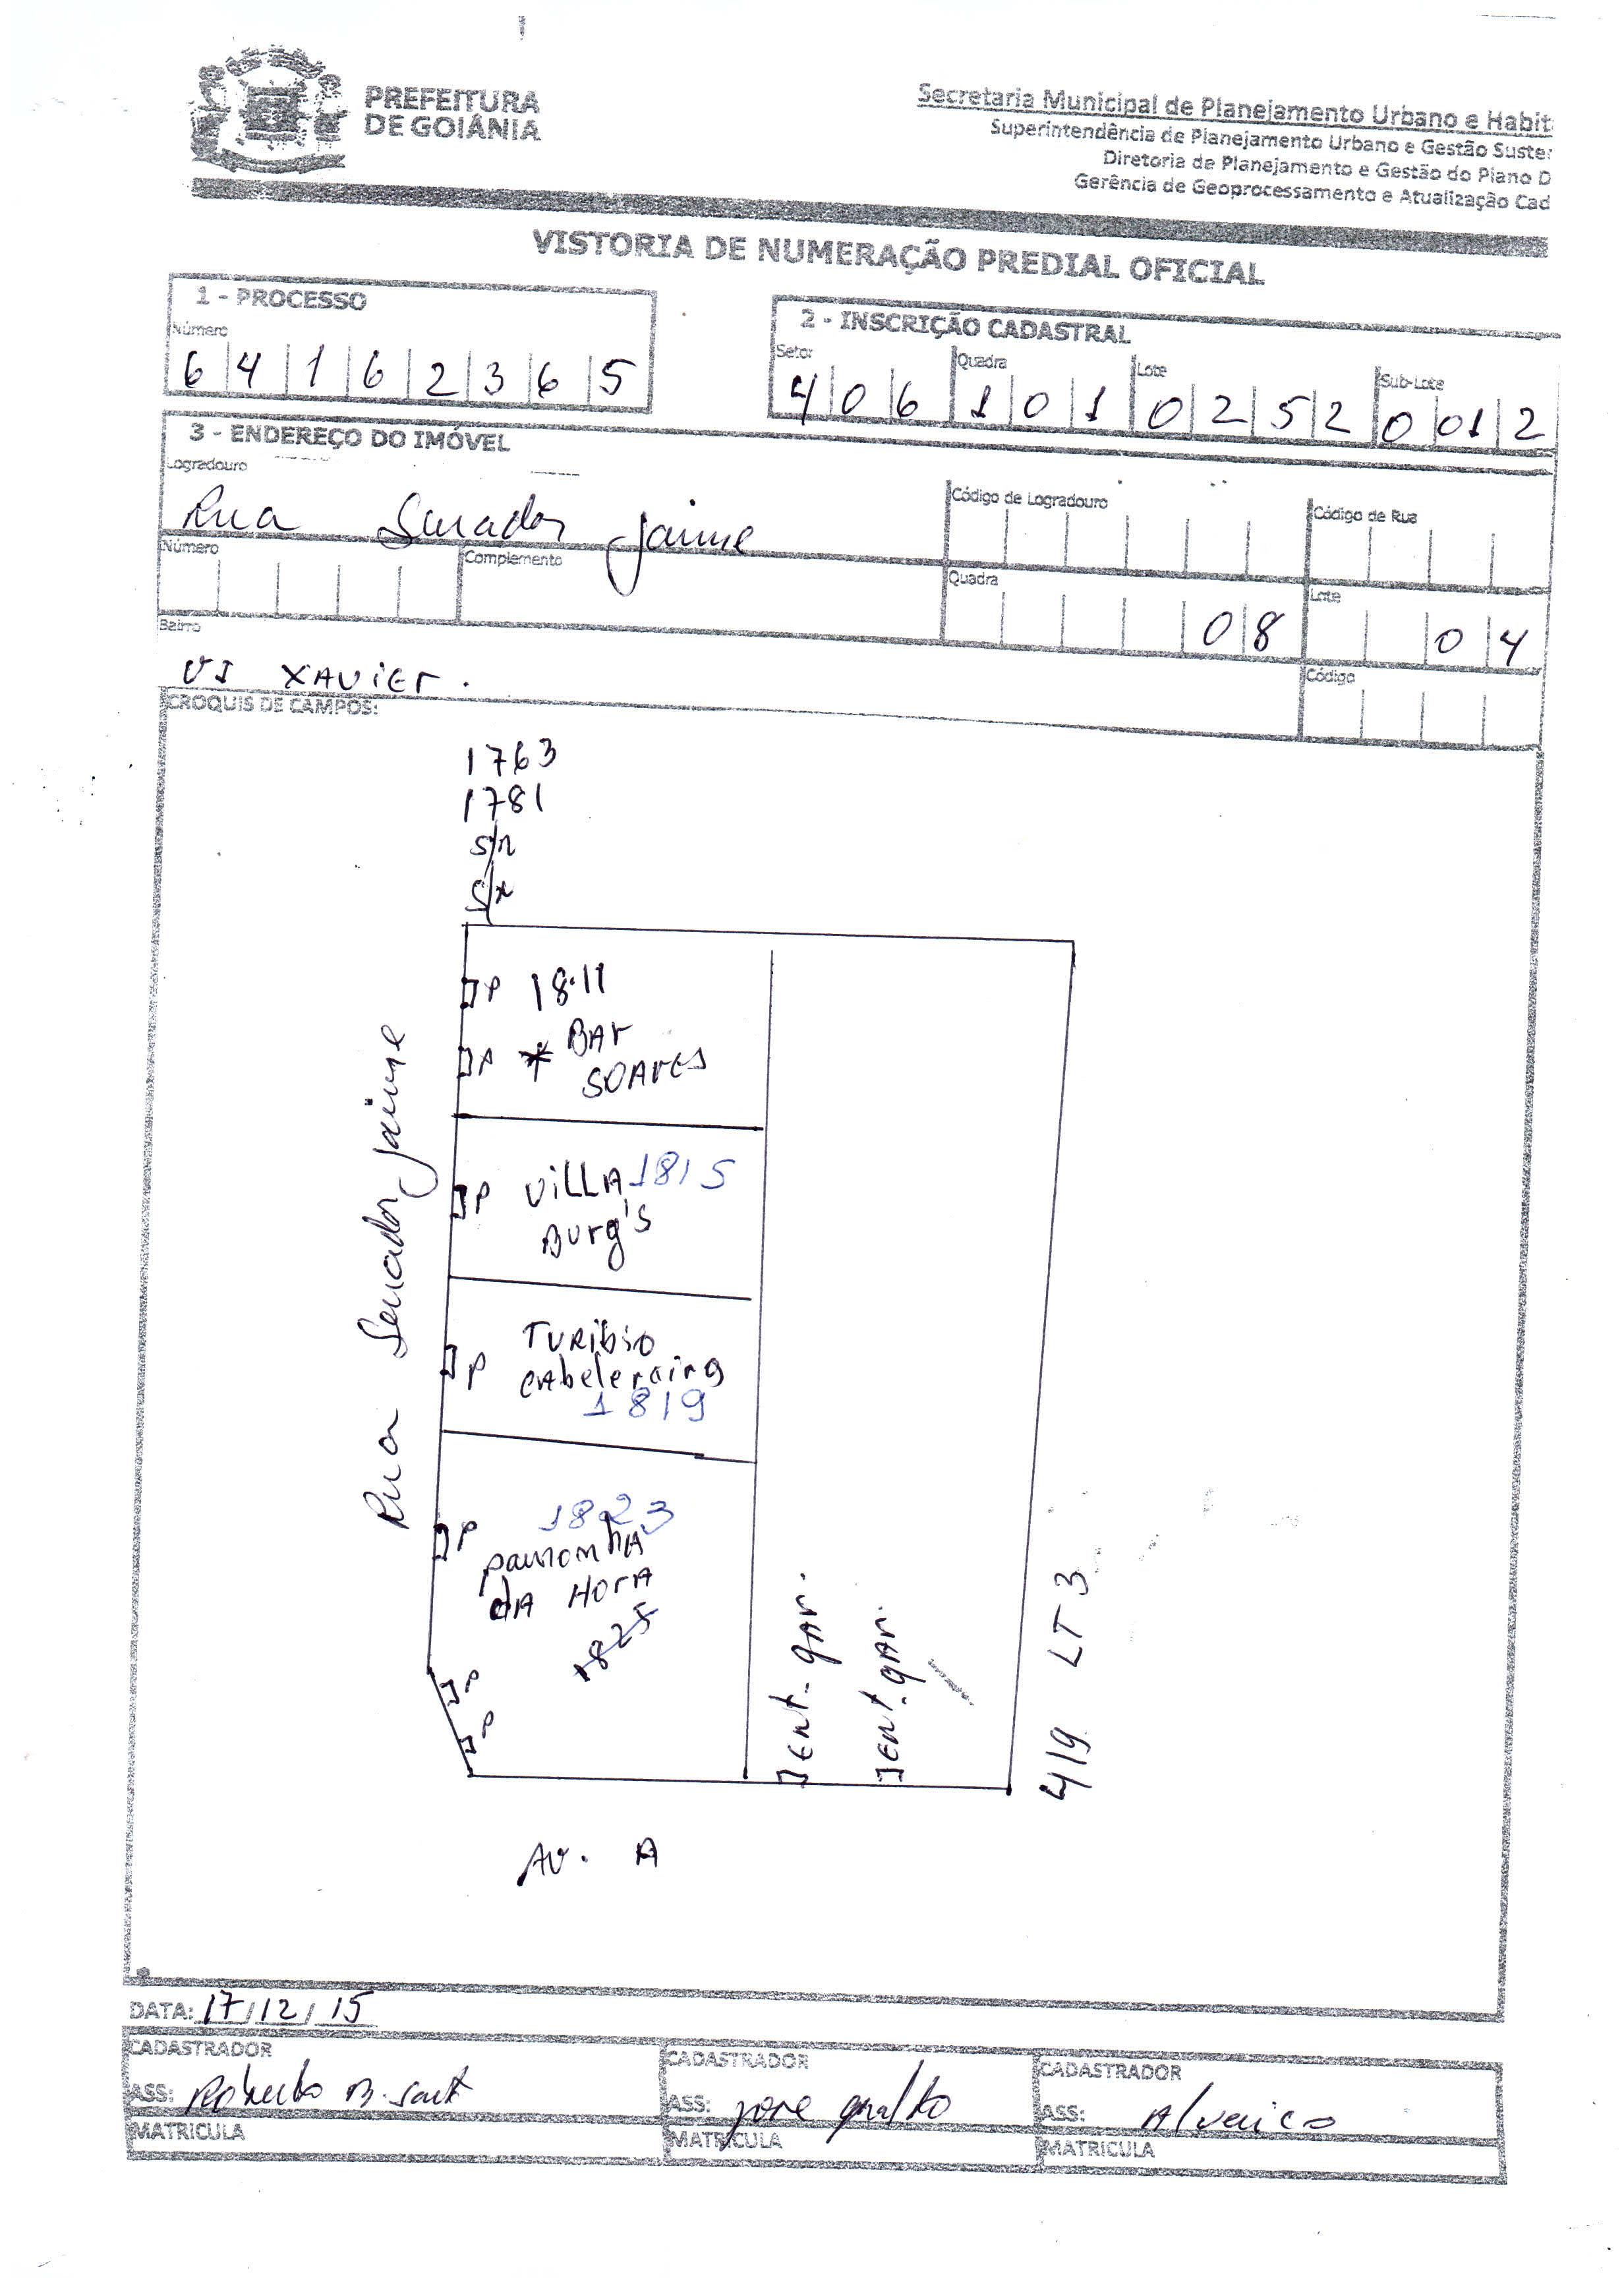 PREFEITURA
DE GOIÂNIA
Secretaria Municipal de Planejamento Urbano e Habit
Superintendência de Planejamento Urbano e Gestão Suster
Diretoria de Planejamento e Gestão do Plano D
Gerência de Geoprocessamento e Atualização Cad
VISTORIA DE NUMERAÇÃO PREDIAL OFICIAL
1 - PROCESSO
Número
6 4 1 6 2 3 6 5
2 - INSCRIÇÃO CADASTRAL
Setor Quadra Lote Sub-Lote
4 0 6 1 0 1 0 2 5 2 0 0 1 2
3 - ENDEREÇO DO IMÓVEL
Logradouro Código de Logradouro Código de Rua
Rua Senador Jaime
Número Complemento Quadra Lote
0 8 0 4
Bairro Código
VI XAVIER.
CROQUIS DE CAMPOS:
1763
1781
S/n
S/n
P 1811
P * BAr
SOAres
P VILLA 1815
Burg's
P TURIBIO
CAbeleraira
1819
1823
P pamonhA
dA HorA
1825
P
P
Rua Senador Jaime
Ent. gAr.
Ent. gAr.
419 LT 3
AV. A
DATA: 17/12/15
CADASTRADOR CADASTRADOR CADASTRADOR
ASS: Roberto B. ASS: ASS:
MATRICULA MATRICULA MATRICULA